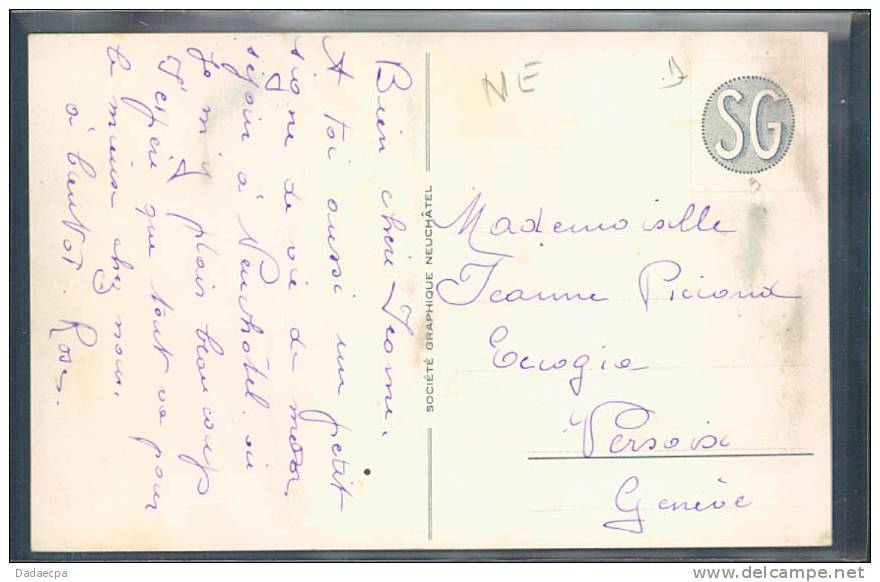 Bien chère Jeanne.
A toi aussi un petit
signe de vie de mon
séjour à Neuchâtel où
je m'y plais beaucoup
J'espère que tout va pour
le mieux chez vous.
à bientôt. Rose.
SOCIÉTÉ GRAPHIQUE NEUCHÂTEL
NE
SG
Mademoiselle
Jeanne
Ecogia
Versoix
Genève
Dadaecpa
delcampe.net